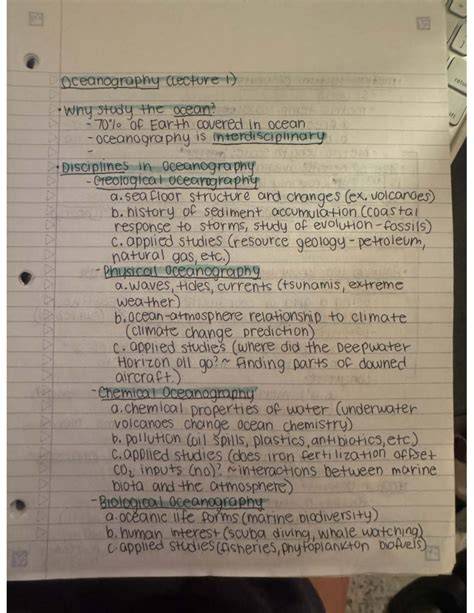 Oceanography (Lecture 1)
• Why study the ocean?
- 70% of Earth covered in ocean
- oceanography is interdisciplinary
-
• Disciplines in Oceanography
- Geological Oceanography
a. seafloor structure and changes (ex. volcanoes)
b. history of sediment accumulation (coastal
response to storms, study of evolution - fossils)
c. applied studies (resource geology - petroleum,
natural gas, etc.)
- Physical Oceanography
a. waves, tides, currents (tsunamis, extreme
weather)
b. ocean-atmosphere relationship to climate
(climate change prediction)
c. applied studies (where did the Deepwater
Horizon oil go? ~ finding parts of downed
aircraft.)
- Chemical Oceanography
a. chemical properties of water (underwater
volcanoes change ocean chemistry)
b. pollution (oil spills, plastics, antibiotics, etc)
c. applied studies (does iron fertilization offset
CO₂ inputs (no)? ~ interactions between marine
biota and the atmosphere)
- Biological Oceanography
a. oceanic life forms (marine biodiversity)
b. human interest (scuba diving, whale watching)
c. applied studies (fisheries, phytoplankton biofuels)